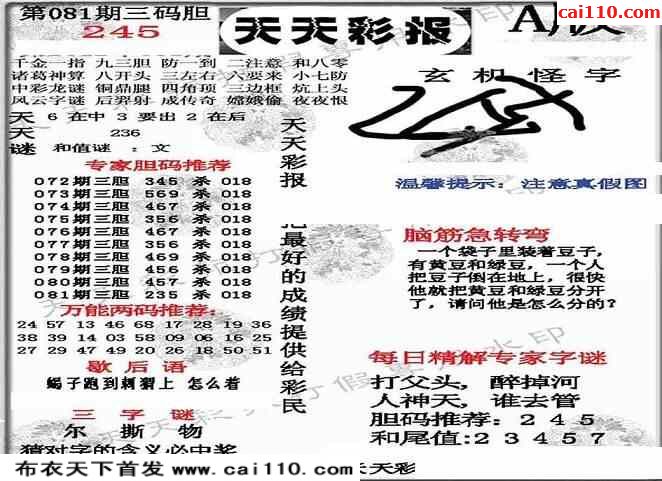 第081期三码胆
245
天天彩报
A版
cai110.com
千金一指 九三胆 防一到 二注意 和八零
诸葛神算 八开头 三左右 六要来 小七防
中彩龙谜 铜鼎腿 四角顶 三边框 炕上头
风云字谜 后羿射 成传奇 嫦娥偷 夜夜恨
天 6 在中 3 要出 2 在后
天 236
谜 和值谜 ：文
专家胆码推荐
072期三胆 345 杀 018
073期三胆 569 杀 018
074期三胆 467 杀 018
075期三胆 356 杀 018
076期三胆 467 杀 018
077期三胆 356 杀 018
078期三胆 469 杀 018
079期三胆 456 杀 018
080期三胆 457 杀 018
081期三胆 235 杀 018
万能两码推荐:
24 57 13 46 68 17 28 19 36
38 39 14 03 58 09 06 16 25
27 29 47 49 20 26 18 50 51
歇后语
蝎子跑到刺猬上 怎么着
三字谜
尔 撕 物
猜对字的含义必中奖
天天彩报
把最好的成绩提供给彩民
玄机怪字
温馨提示：注意真假图
脑筋急转弯
一个袋子里装着豆子,
有黄豆和绿豆，一个人
把豆子倒在地上，很快
他就把黄豆和绿豆分开
了，请问他是怎么分的?
每日精解专家字谜
打父头，醉掉河
人神天，谁去管
胆码推荐：2 4 5
和尾值:2 3 4 5 7
布衣天下首发 www.cai110.com
天天彩